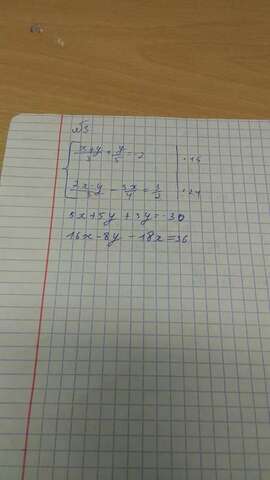 №3
(x+y)/3 + y/5 = -2 | ·15
(2x-y)/3 - 3x/4 = 3/2 | ·24
5x+5y+3y=-30
16x-8y-18x=36